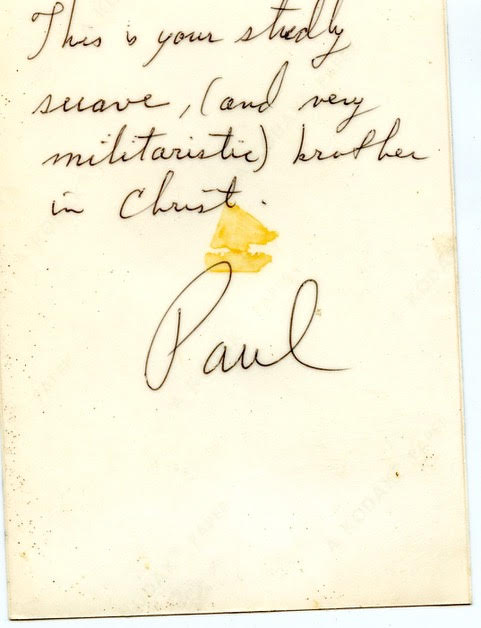 This is your studly
suave, (and very
militaristic) brother
in Christ.
Paul
A KODAK PAPER